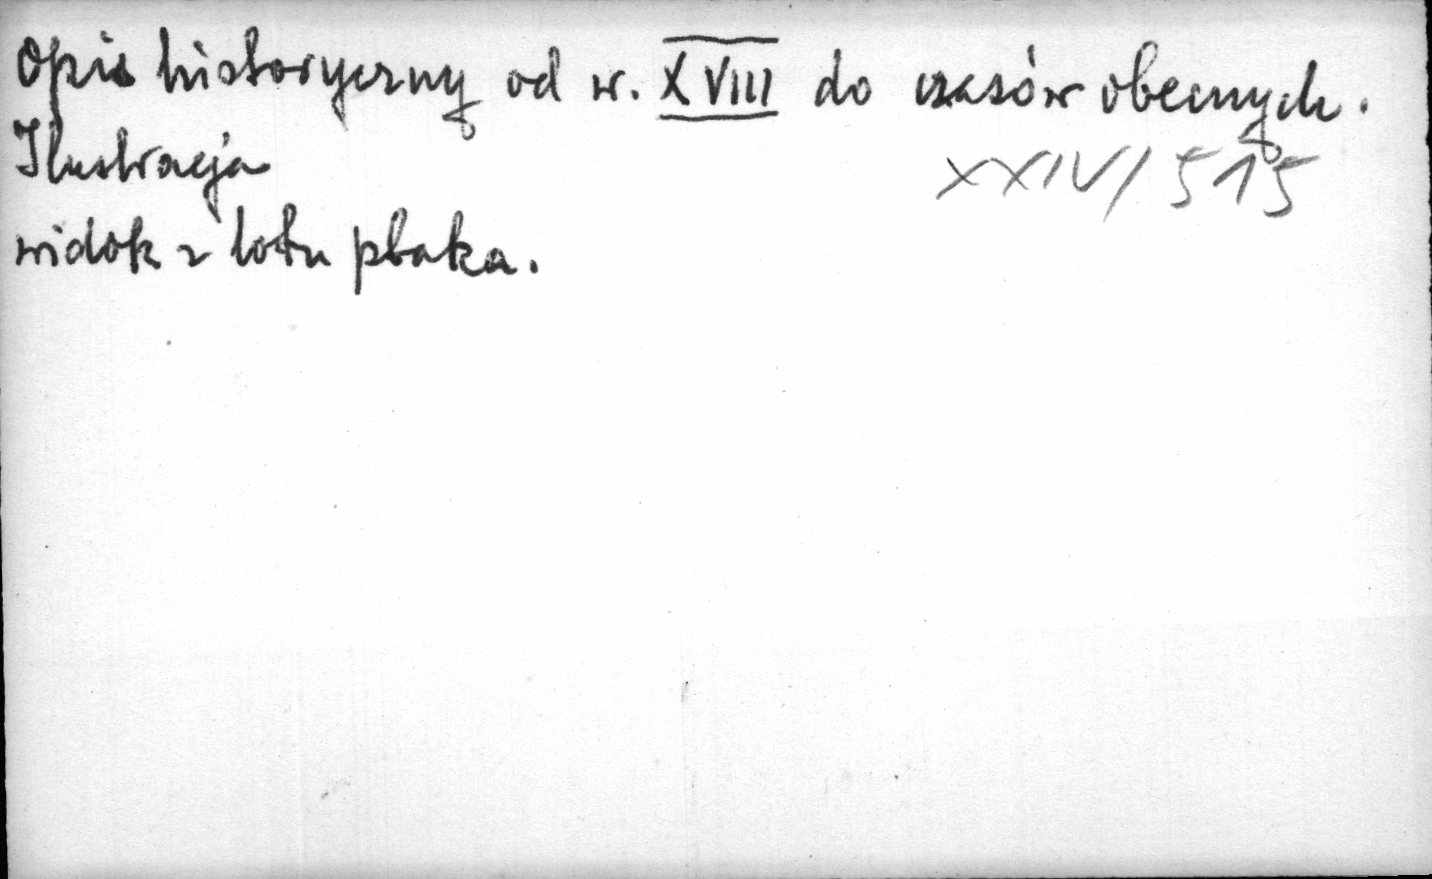 Opis historyczny od w. XVIII do czasów obecnych.
Ilustracja
XXIV/515
widok z lotu ptaka.